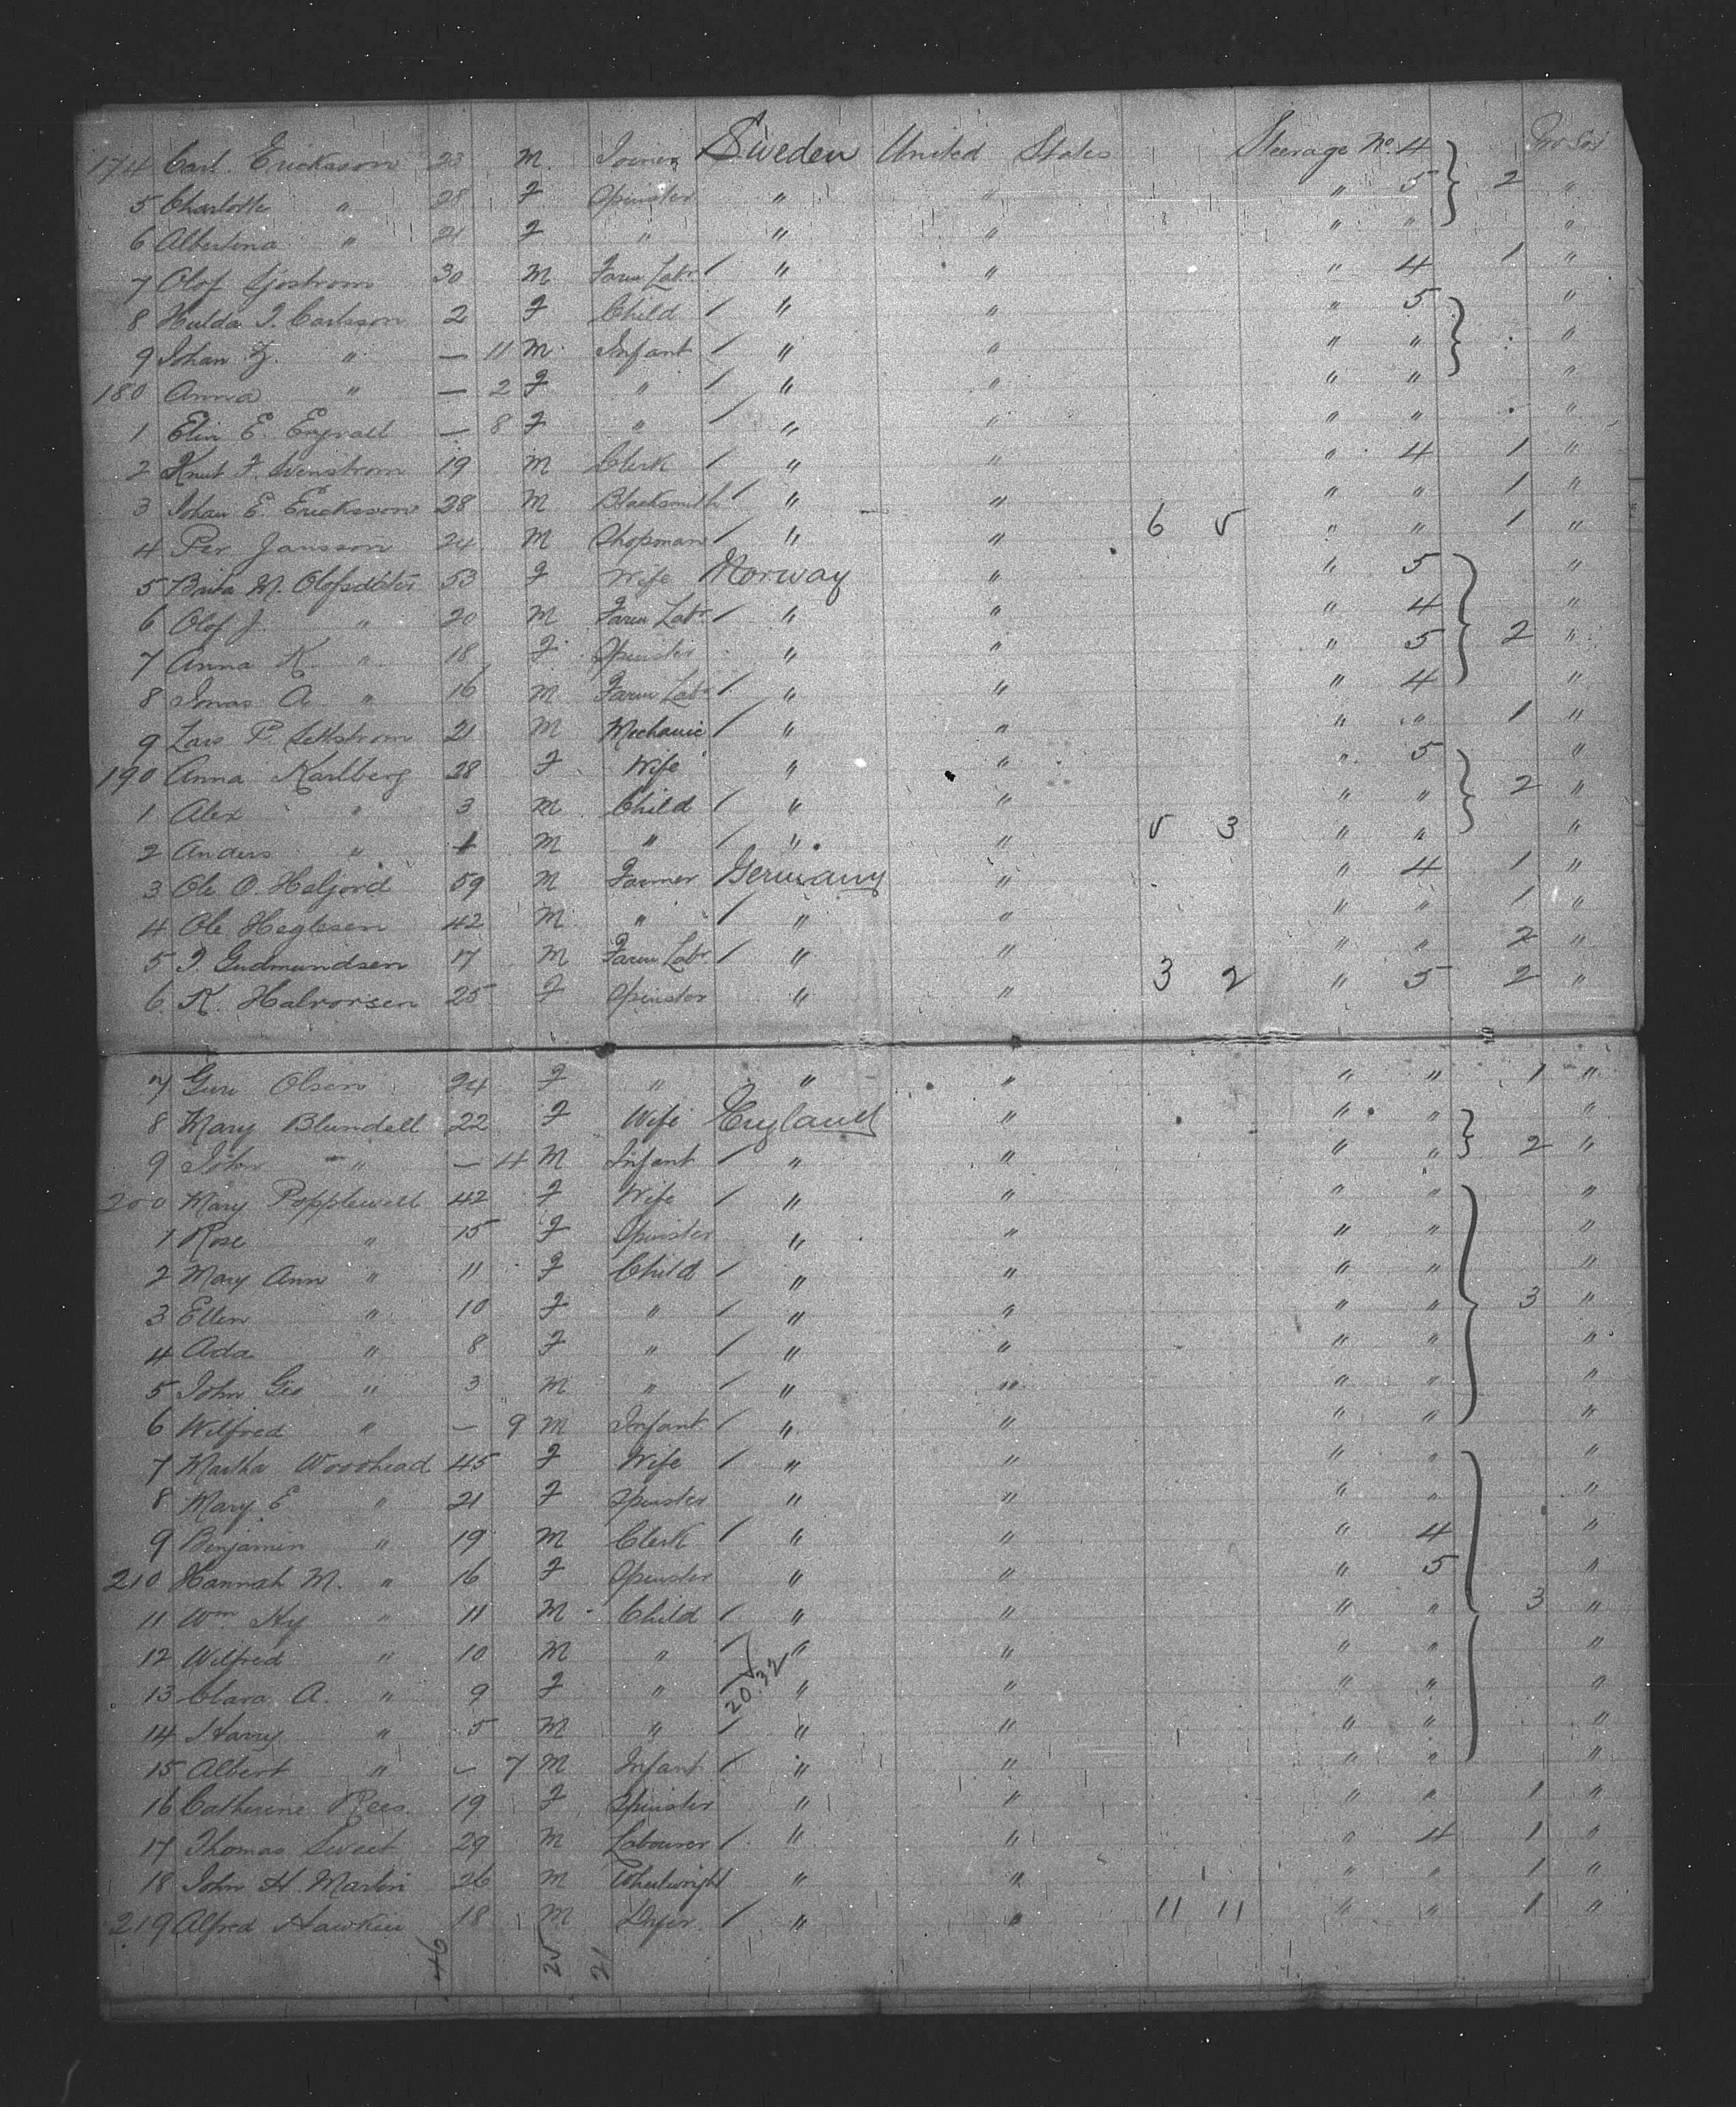 174 Carl. Ericksson 23 M. Joiner Sweden United States Steerage No. 4
5 Charlotte " 28 F Spinster " " " 5 2 "
6 Albertina " 21 F " " " " " "
7 Olof Sjostrom 30 M Farm Labr / " " " 4 1 "
8 Hulda J. Carlsson 2 F Child / " " " 5 "
9 Johan " — 11 M Infant / " " " " "
180 Anna " — 2 F " / " " " " "
1 Elin E. — 8 F " / " " " " "
2 Knut F. 19 M Clerk / " " " 4 1 "
3 Johan E. Ericksson 28 M Blacksmith / " " " " 1 "
4 Per Jansson 24 M Shopman / " " 6 5 " " 1 "
5 Brita M. 53 F Wife Norway " " 5 "
6 Olof J. " 20 M Farm Labr / " " " 4 "
7 Anna K. " 18 F Spinster " " " 5 2 "
8 Jonas A. " 16 M Farm Labr / " " " 4 "
9 Lars P. 21 M Mechanic / " " " " 1 "
190 Anna Karlberg 28 F Wife " " " 5 "
1 Alex " 3 M Child / " " " " 2 "
2 Anders " 1 M " / " " 5 3 " " "
3 Ole O. 59 M Farmer Germany " " 4 1 "
4 Ole 42 M " / " " " " 1 "
5 Gudmundsen 17 M Farm Labr / " " " " 2 "
6 K. Halvorsen 25 F Spinster " " 3 2 " 5 2 "
7 Olsen 24 F " " " " " 1 "
8 Mary Blundell 22 F Wife England " " " "
9 John " — 4 M Infant / " " " " 2 "
200 Mary Popplewell 42 F Wife / " " " " "
1 Rose " 15 F Spinster " " " " "
2 Mary Ann " 11 F Child / " " " " "
3 Ellen " 10 F " / " " " " 3 "
4 Ada " 8 F " / " " " " "
5 John Geo " 3 M " / " " " " "
6 Wilfred " — 9 M Infant / " " " " "
7 Martha Woodhead 45 F Wife / " " " " "
8 Mary E " 21 F Spinster " " " " "
9 Benjamin " 19 M Clerk / " " " 4 "
210 Hannah M. " 16 F Spinster " " " 5 "
11 Wm Hy " 11 M Child / " " " " 3 "
12 Wilfred " 10 M " / " " " " "
13 Clara A. " 9 F " / 20.32 " " " " "
14 Harry " 5 M " / " " " " "
15 Albert " — 7 M Infant / " " " " "
16 Catherine Rees 19 F Spinster " " " " 1 "
17 Thomas Sweet 29 M Labourer / " " " 4 1 "
18 John H. Martin 26 M Wheelwright " " " " 1 "
219 Alfred Hawkin 18 M / " " 11 11 " " 1 "
46 25 21